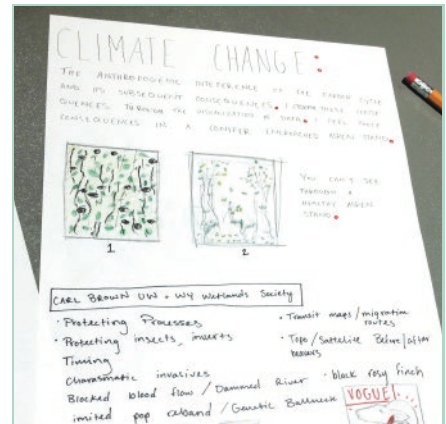 CLIMATE CHANGE:
THE ANTHROPOGENIC INTEFERENCE OF THE CARBON CYCLE
AND ITS SUBSEQUENT CONSEQUENCES. I THESE
QUENCES THROUGH THE VISUALIZATION OF DATA. I FEEL THESE
CONSEQUENCES IN A CONIFER ENCROACHED ASPEN STAND.
YOU CAN'T SEE
THROUGH A
HEALTHY ASPEN
STAND.
1
2
CARL BROWN UW + WY Wetlands Society
· Protecting Processes
· Protecting insects, inverts
Timing
Charasmatic invasives
Blocked blood flow / Dammed River
limited pop reband / Genetic Ballneck
· Transit maps / migration
routes
· Topo / Sattelite Before/after
beavers
· black rosy finch
VOGUE!